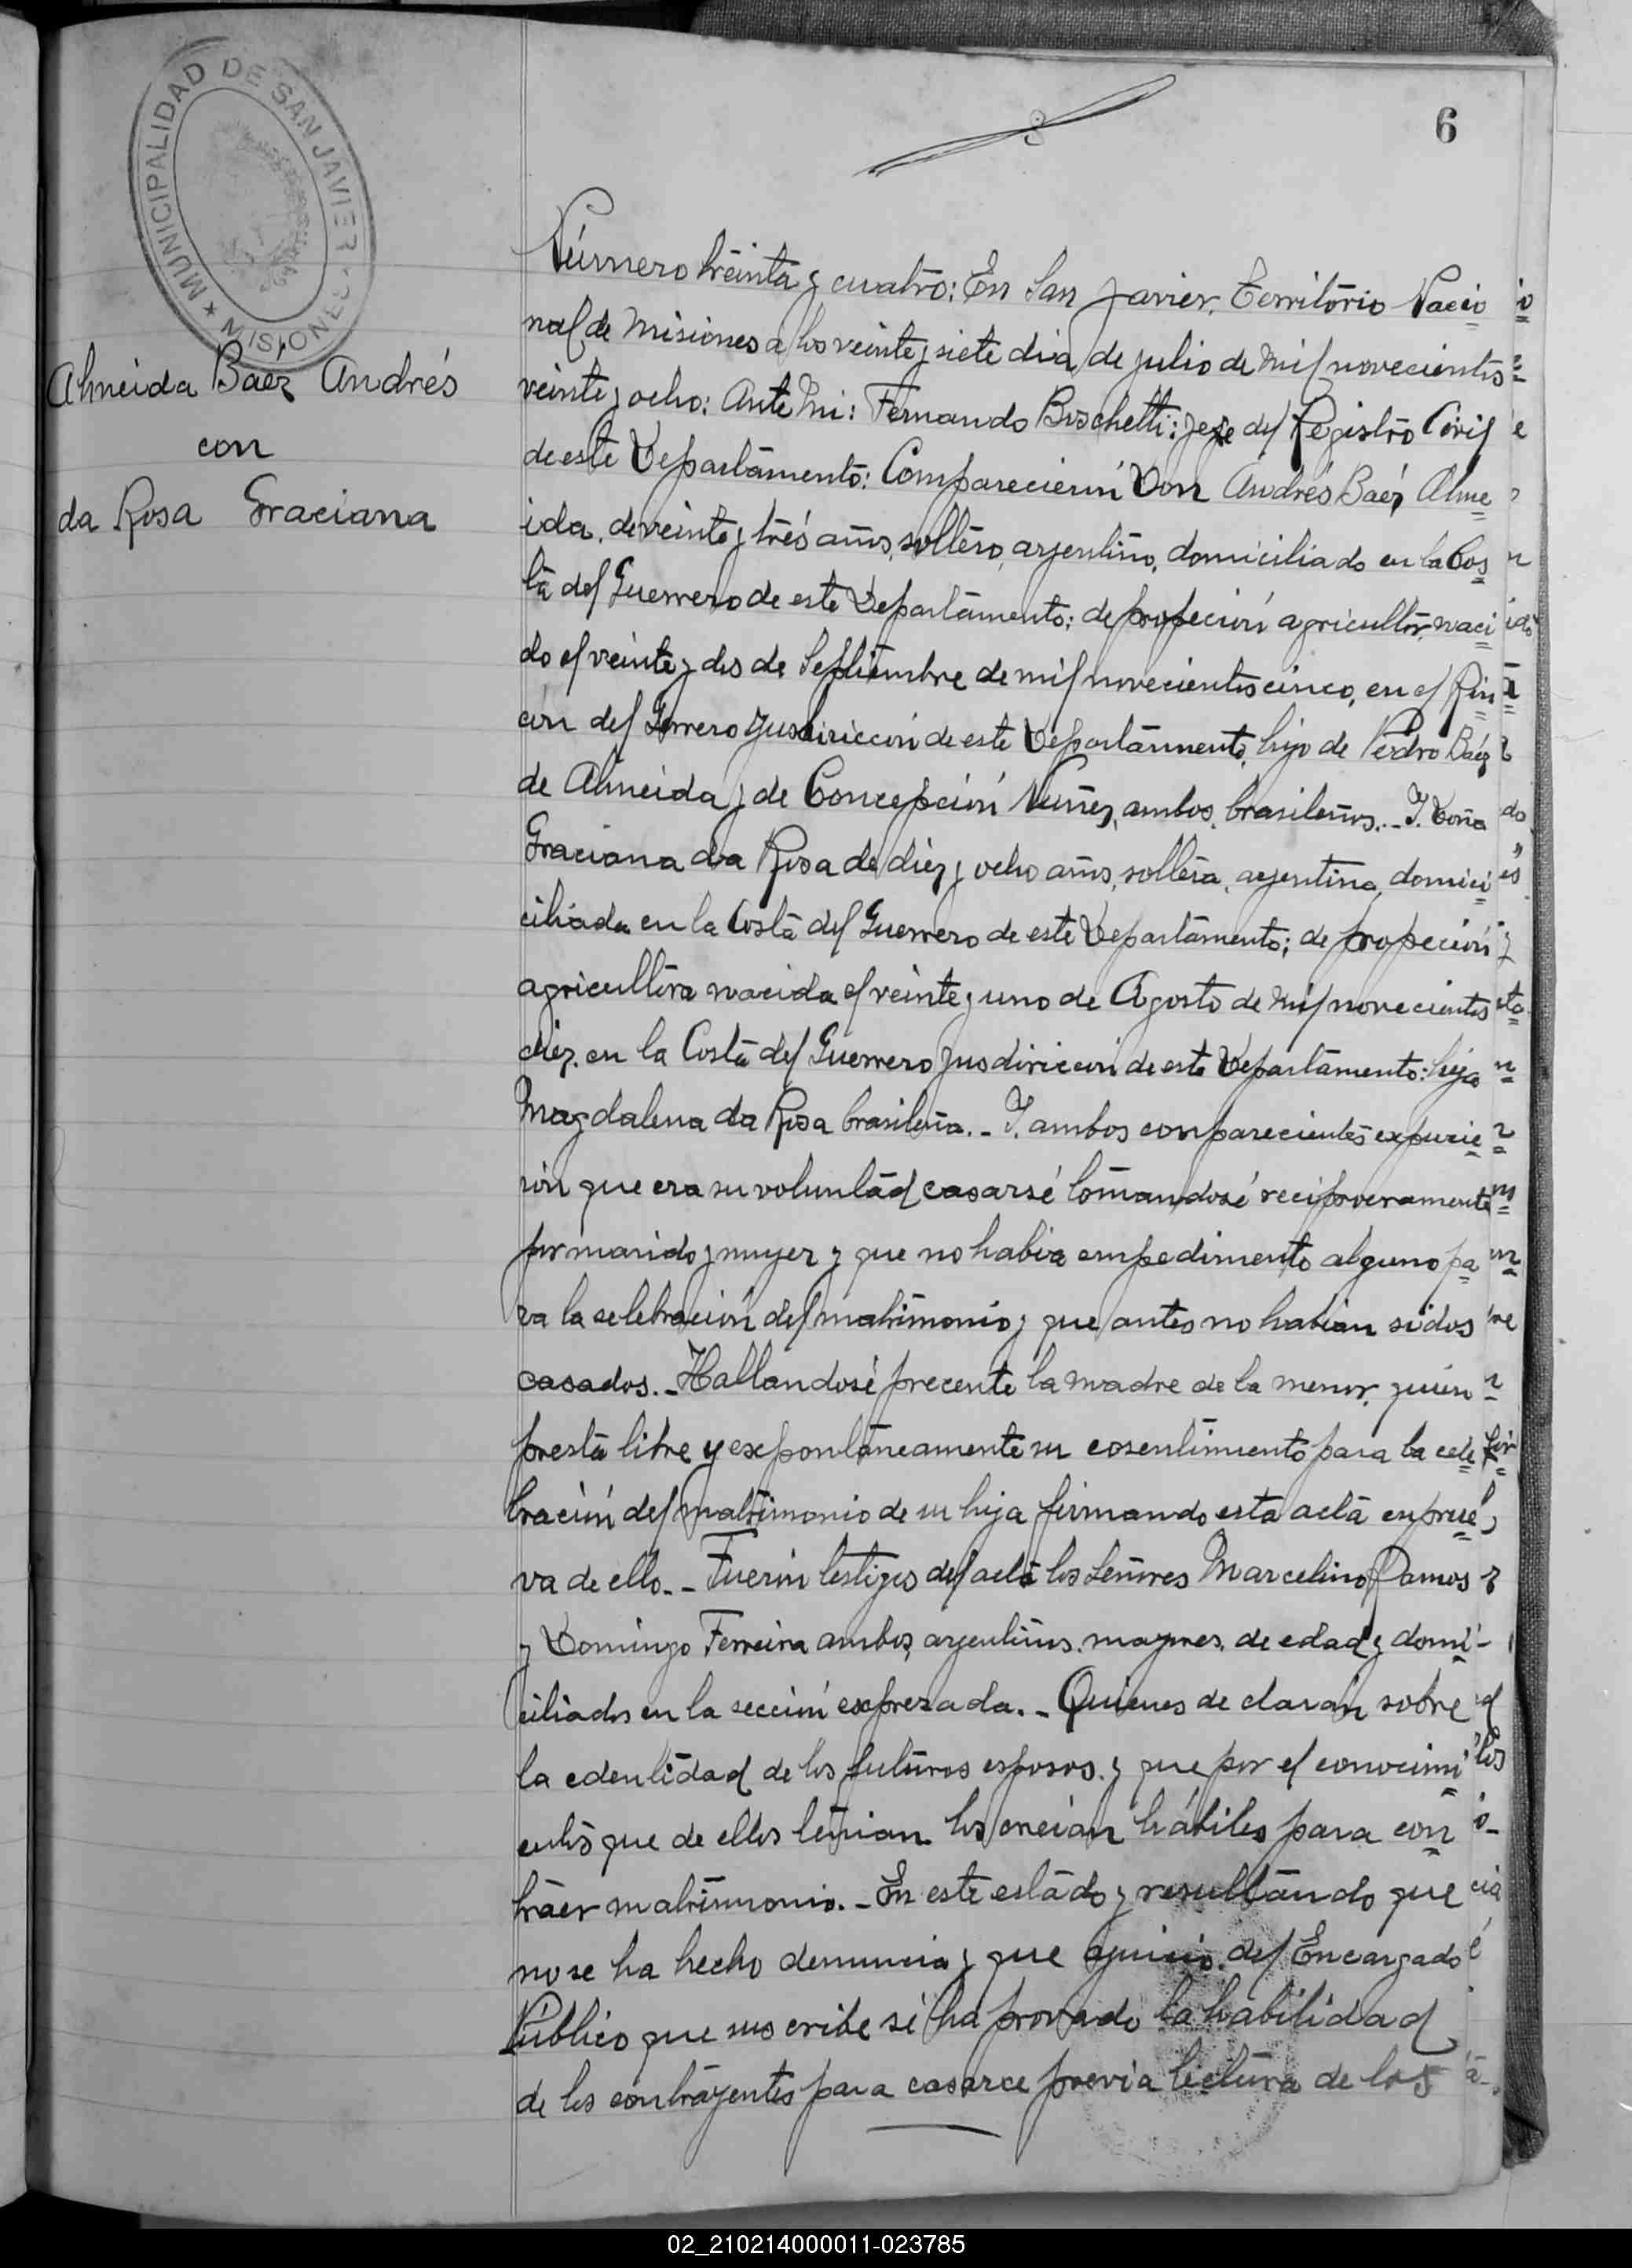 MUNICIPALIDAD DE SAN JAVIER
★ MISIONES
6
Almeida Baez Andrés
con
da Rosa Graciana
Número treinta y cuatro: En San Javier, Territorio Nacio
nal de Misiones a los veinte y siete dia, de julio de mil novecientos
veinte y ocho: Ante Mi: Fernando Boschetti: Jefe del Registro Civil
de este Departamento: Comparecierón Don Andrés Baéz Alme
ida, de veinte y trés años, soltero, argentino, domiciliado en la Cos
ta del Guerrero de este Departamento: de profeción agricultor, naci
do el veinte y dos de Septiembre de mil novecientos cinco, en el Rin
cón del Gerrero Jusdirición de este Departamento, hijo de Pedro Báez
de Almeida y de Concepción Nuñez, ambos, brasileños.- Y. Doña
Graciana da Rosa de diez y ocho años, soltera, argentina, domici
ciliada en la Costa del Guerrero de este Departamento; de profeción
agricultora nacida el veinte y uno de Agosto de mil novecientos
diez, en la Costa del Guerrero Jusdirición de este Departamento: hija
Magdalena da Rosa brasileña.- Y. ambos comparecientes expucie
rón que era su voluntad casarsé tomandosé reciprocramente
por marido y muyer y que no habia empedimento alguno pa
ra la selebración del matrimonio y que antes no habian sidos
casados.- Hallandosé precente la madre de la menor, quien
presta libre y exspontaneamente su cosentimiento para la cele
bración del matrimonio de su hija firmando esta acta en prue
va de ello.- Fuerón testigos del acta los Señores Marcelino Ramos
y Domingo Ferreira ambos, argentinos, mayores, de edad y domi
ciliados en la sección expresada.- Quienes de claran sobre
la edentidad de los futuros esposos, y que por el conocimi
entos que de ellos tenian los creian hábiles para con
traer matrimonio.- En este estado y resultando que
no se ha hecho denuncia y que ajuicio del Encargado
Público que suscribe sé ha provado la habilidad
de los contrayentes para casarce previa lectura de los
02_210214000011-023785